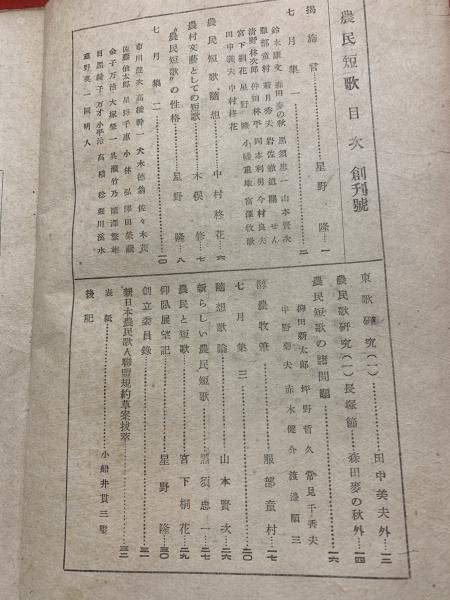 農民短歌 目次 創刊號
揭施言……星野隆…一
七月集一……二
鈴木康文 森田麥の秋 黒須忠一 山本賢次
服部童村 若月秀夫 岩佐徹道 關せん
清野林次郎 仲田林平 岡本利男 今村良夫
宮下桐花 星野隆 小幡重雄 富澤牧歌
田中義夫 中村柊花
農民短歌隨想……中村柊花…六
農村文藝としての短歌……木俣修…七
"農民短歌"の性格……星野隆…八
七月集二……一〇
市川豊次 高橋幹一 大木徳翁 佐々木茂
佐藤倫太郎 星野千惠 小林弘 津田榮藏
金子万治 大塚榮一 呉瀬竹乃 諸澤繁雄
目黒綾子 万才小平治 高橋稔 堀川溪水
鹿野英一 關明人
東歌研究(一)……田中美夫外…一二
農民歌研究(一)長塚節……森田麥の秋外…一四
農民短歌の諸問題……一六
柳田新太郎 坪野哲久 常見千香夫
中野菊夫 赤木健介 渡邊順三
酪農牧筆……服部童村…一七
七月集三……二〇
隨想歌論……山本賢次…二六
新らしい農民短歌……黒須忠一…二七
農民と短歌……宮下桐花…二九
仰臥展望記……星野隆…三〇
創立委員錄……三一
新日本農民歌人聯盟規約草案抜萃……三二
表紙……小船井貫三畫
後記